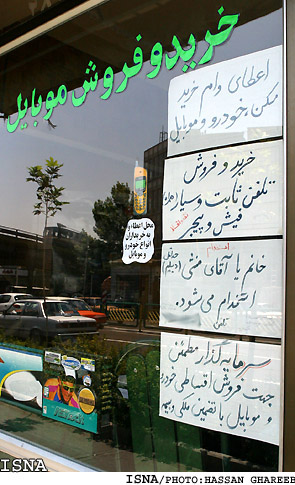 خرید و فروش موبایل
اعطای وام خرید
مسکن، خودرو و موبایل
خرید و فروش
تلفن ثابت و سیار (همراه)
فیش و پیجر
محل اعطاء وام
به خریداران
انواع خودرو
و موبایل
استخدام
خانم یا آقای منشی (حداقل
دیپلم)
استخدام می‌شود.
تلفنی
سرمایه گذار مطمئن
جهت فروش اقساطی خودرو
و موبایل با تضمین ملکی و بیمه
ISNA
ISNA/PHOTO:HASSAN GHAREEB